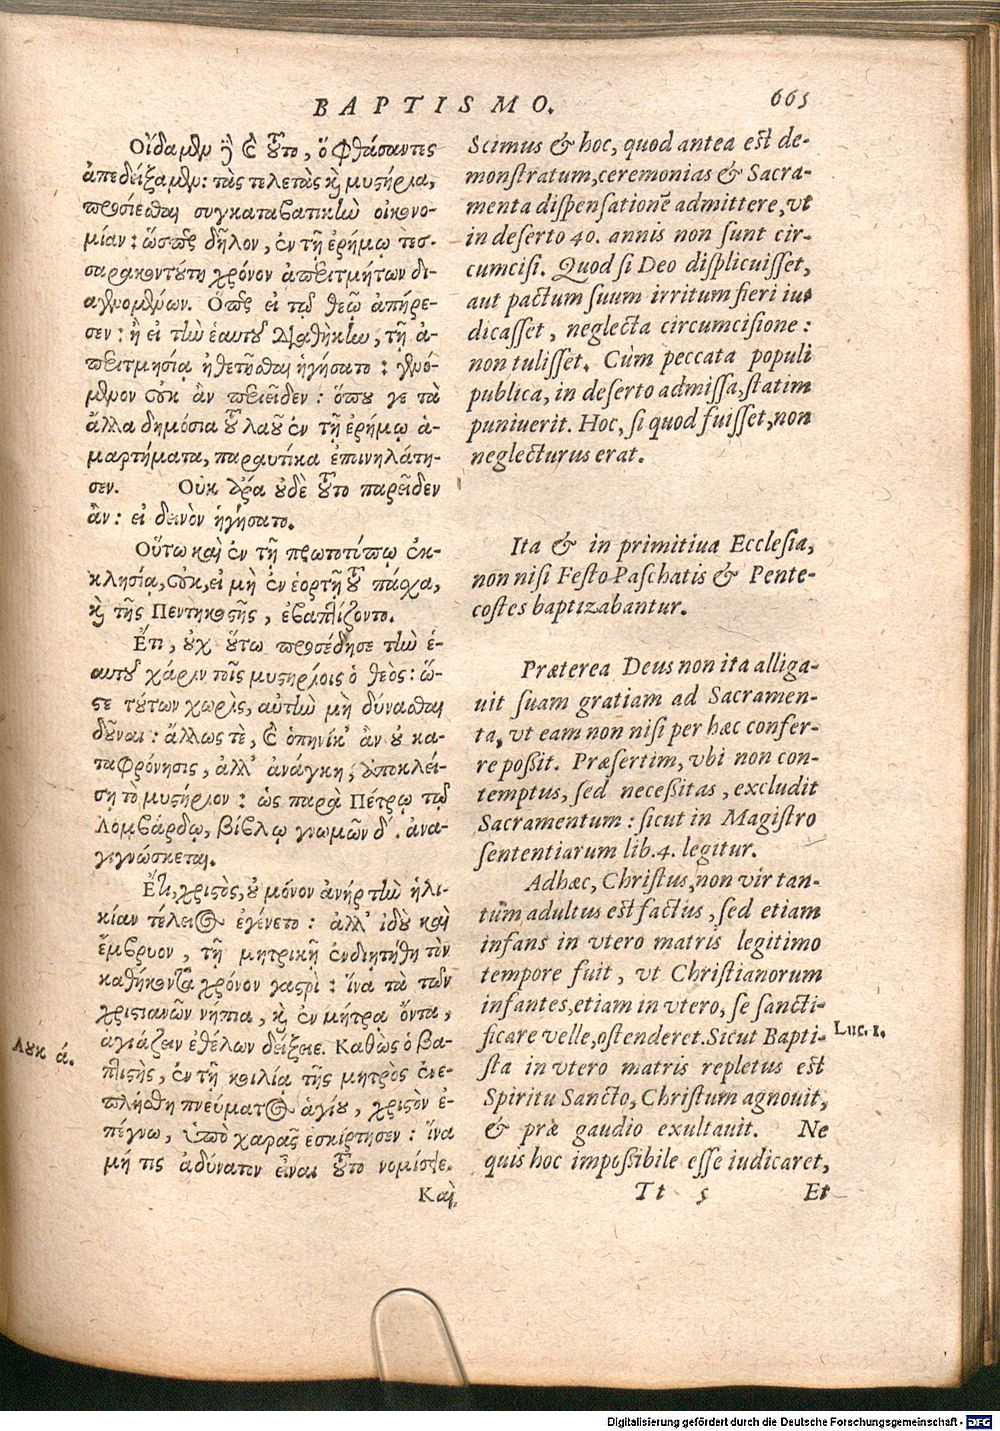 BAPTISMO.
665
Οἴδαμεν ἢ καὶ τοῦτο, ὅ φθάσαντες
ἀπεδείξαμεν: τὰς τελετὰς καὶ μυστήρια,
προσίεσθαι συγκαταβατικὴν οἰκονο-
μίαν: ὥσπερ δῆλον, ἐν τῇ ἐρήμῳ τεσ-
σαρακοντούτη χρόνον ἀπεριτμήτων δι-
αγενομένων. Ὅπερ εἰ τῷ θεῷ ἀπήρε-
σεν: ἢ εἰ τὴν ἑαυτοῦ διαθήκην, τῇ ἀ-
περιτμησίᾳ ἠθετῆσθαι ἡγήσατο: γενό-
μενον οὐκ ἂν περιεῖδεν: ὅπου γε τὰ
ἄλλα δημόσια τοῦ λαοῦ ἐν τῇ ἐρήμῳ ἁ-
μαρτήματα, παραυτίκα ἐπινηλάτη-
σεν. Οὐκ ἄρα οὐδὲ τοῦτο παρεῖδεν
ἂν: εἰ δεινὸν ἡγήσατο.
Οὕτω καὶ ἐν τῇ πρωτοτύπῳ ἐκ-
κλησίᾳ, οὐκ, εἰ μὴ ἐν ἑορτῇ τοῦ πάσχα,
καὶ τῆς Πεντηκοστῆς, ἐβαπτίζοντο.
Ἔτι, οὐχ οὕτω προσέδησε τὴν ἑ-
αυτοῦ χάριν τοῖς μυστηρίοις ὁ θεὸς: ὥ-
στε τούτων χωρὶς, αὐτὴν μὴ δύνασθαι
δοῦναι: ἄλλως τὲ, καὶ ὁπηνίκ' ἂν οὐ κα-
ταφρόνησις, ἀλλ' ἀνάγκη, ὑποκλεί-
σῃ τὸ μυστήριον: ὡς παρὰ Πέτρῳ τῷ
Λομβάρδῳ, βίβλῳ γνωμῶν δ'. ἀνα-
γιγνώσκεται.
Ἔτι, χριστὸς, οὐ μόνον ἀνὴρ τὴν ἡλι-
κίαν τέλειος ἐγένετο: ἀλλ' ἰδοὺ καὶ
ἔμβρυον, τῇ μητρικῇ ἐνδιῃτήθη τὸν
καθήκοντα χρόνον γαστρὶ: ἵνα τὰ τῶν
χριστιανῶν νήπια, καὶ ἐν μήτρα ὄντα,
ἁγιάζειν ἐθέλων δείξειε. Καθὼς ὁ βα-
πτιστὴς, ἐν τῇ κοιλίᾳ τῆς μητρὸς ἐνε-
πλήσθη πνεύματος ἁγίου, χριστὸν ἐ-
πέγνω, ὑπὸ χαρᾶς ἐσκίρτησεν: ἵνα
μή τις ἀδύνατον εἶναι τοῦτο νομίσειε.
Καὶ
Λουκ ά.
Scimus & hoc, quod antea est de-
monstratum, ceremonias & Sacra-
menta dispensationē admittere, vt
in deserto 40. annis non sunt cir-
cumcisi. Quod si Deo displicuisset,
aut pactum suum irritum fieri iu-
dicasset, neglecta circumcisione:
non tulisset. Cùm peccata populi
publica, in deserto admissa, statim
puniuerit. Hoc, si quod fuisset, non
neglecturus erat.
Ita & in primitiua Ecclesia,
non nisi Festo Paschatis & Pente-
costes baptizabantur.
Præterea Deus non ita alliga-
uit suam gratiam ad Sacramen-
ta, vt eam non nisi per hæc confer-
re possit. Præsertim, vbi non con-
temptus, sed necessitas, excludit
Sacramentum: sicut in Magistro
sententiarum lib. 4. legitur.
Adhæc, Christus, non vir tan-
tùm adultus est factus, sed etiam
infans in vtero matris legitimo
tempore fuit, vt Christianorum
infantes, etiam in vtero, se sancti-
ficare velle, ostenderet. Sicut Bapti-
sta in vtero matris repletus est
Spiritu Sancto, Christum agnouit,
& præ gaudio exultauit. Ne
quis hoc impossibile esse iudicaret,
Tt 5 Et
Luc. 1.
Digitalisierung gefördert durch die Deutsche Forschungsgemeinschaft - DFG